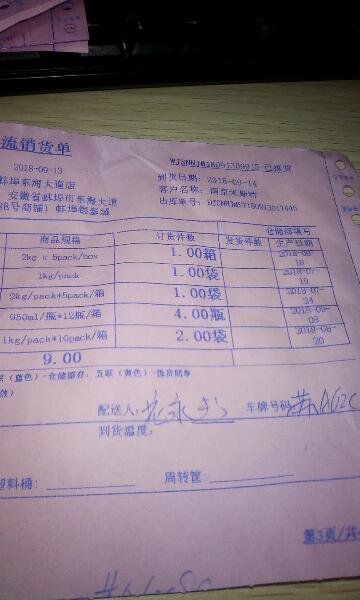 流销货单
WJSNNJW18091309915 已拣货
2018-09-13
到货日期: 2018-09-14
蚌埠东海大道店
客户名称: 南京米斯特
安徽省蚌埠市东海大道
号商铺) 蚌埠银泰城
出库单号:
仓储部填写
商品规格 订货件数 发货件数 生产日期
2kg x 5pack/box 1.00箱 2018-08-16
1kg/pack 1.00袋 2018-07-19
2kg/pack*5pack/箱 1.00袋 2018-07-24
950ml/瓶*12瓶/箱 4.00瓶
1kg/pack*10pack/箱 2.00袋 2018-08-20
9.00
(蓝色)-仓储留存, 五联(黄色)-拣货回单
配送人: 车牌号码:
到货温度:
塑料桶: 周转筐:
第3页/共